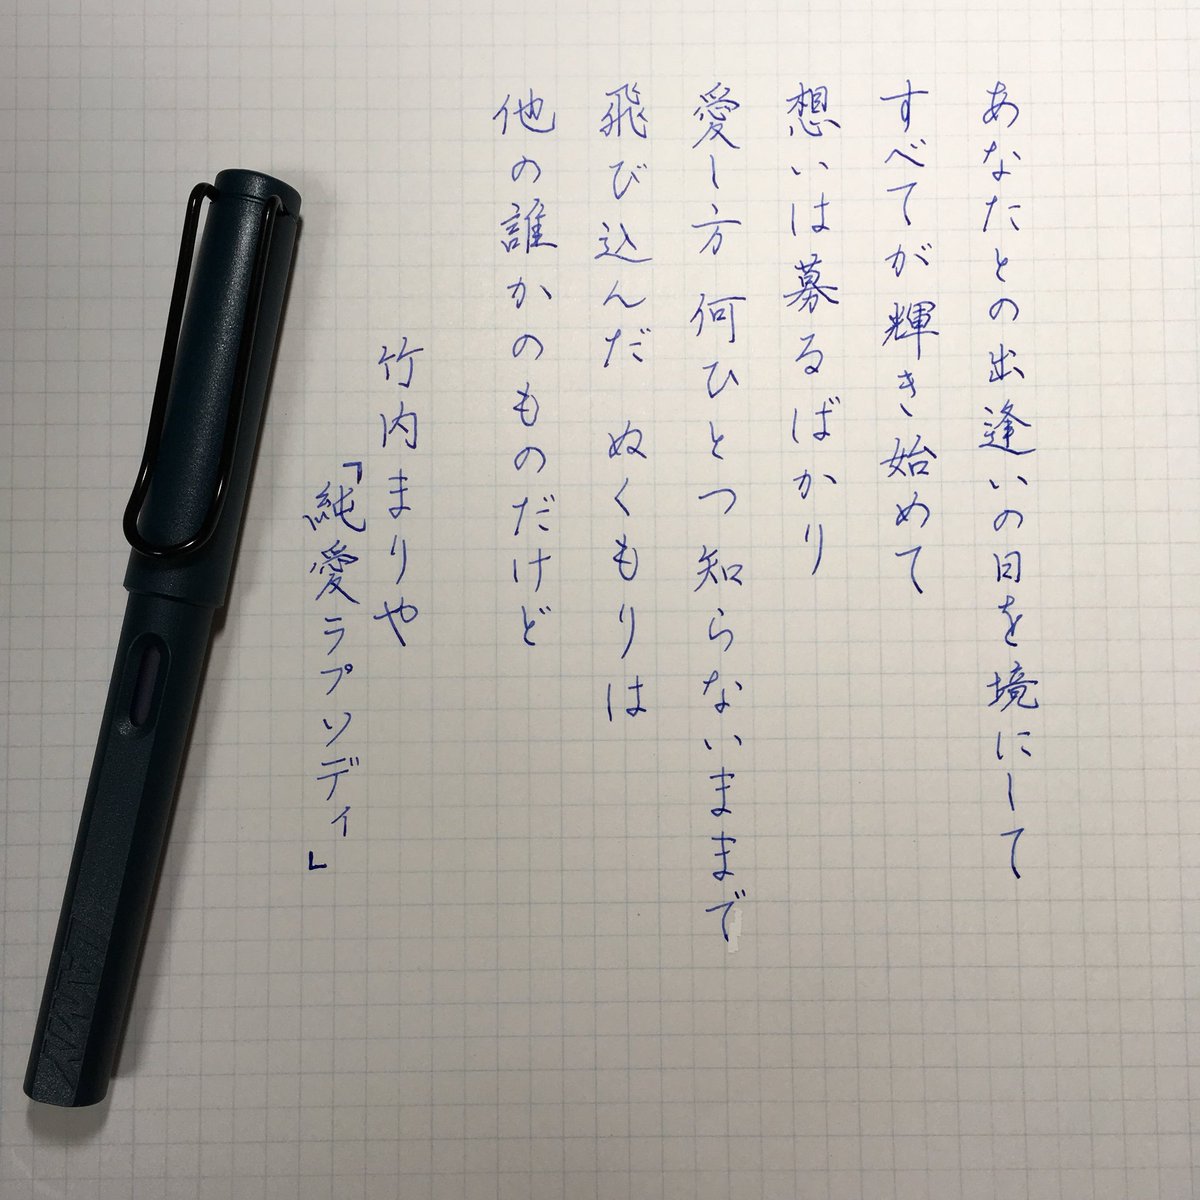 あなたとの出逢いの日を境にして
すべてが輝き始めて
想いは募るばかり
愛し方 何ひとつ知らないままで
飛び込んだ ぬくもりは
他の誰かのものだけど
竹内まりや
「純愛ラプソディ」
LAMY